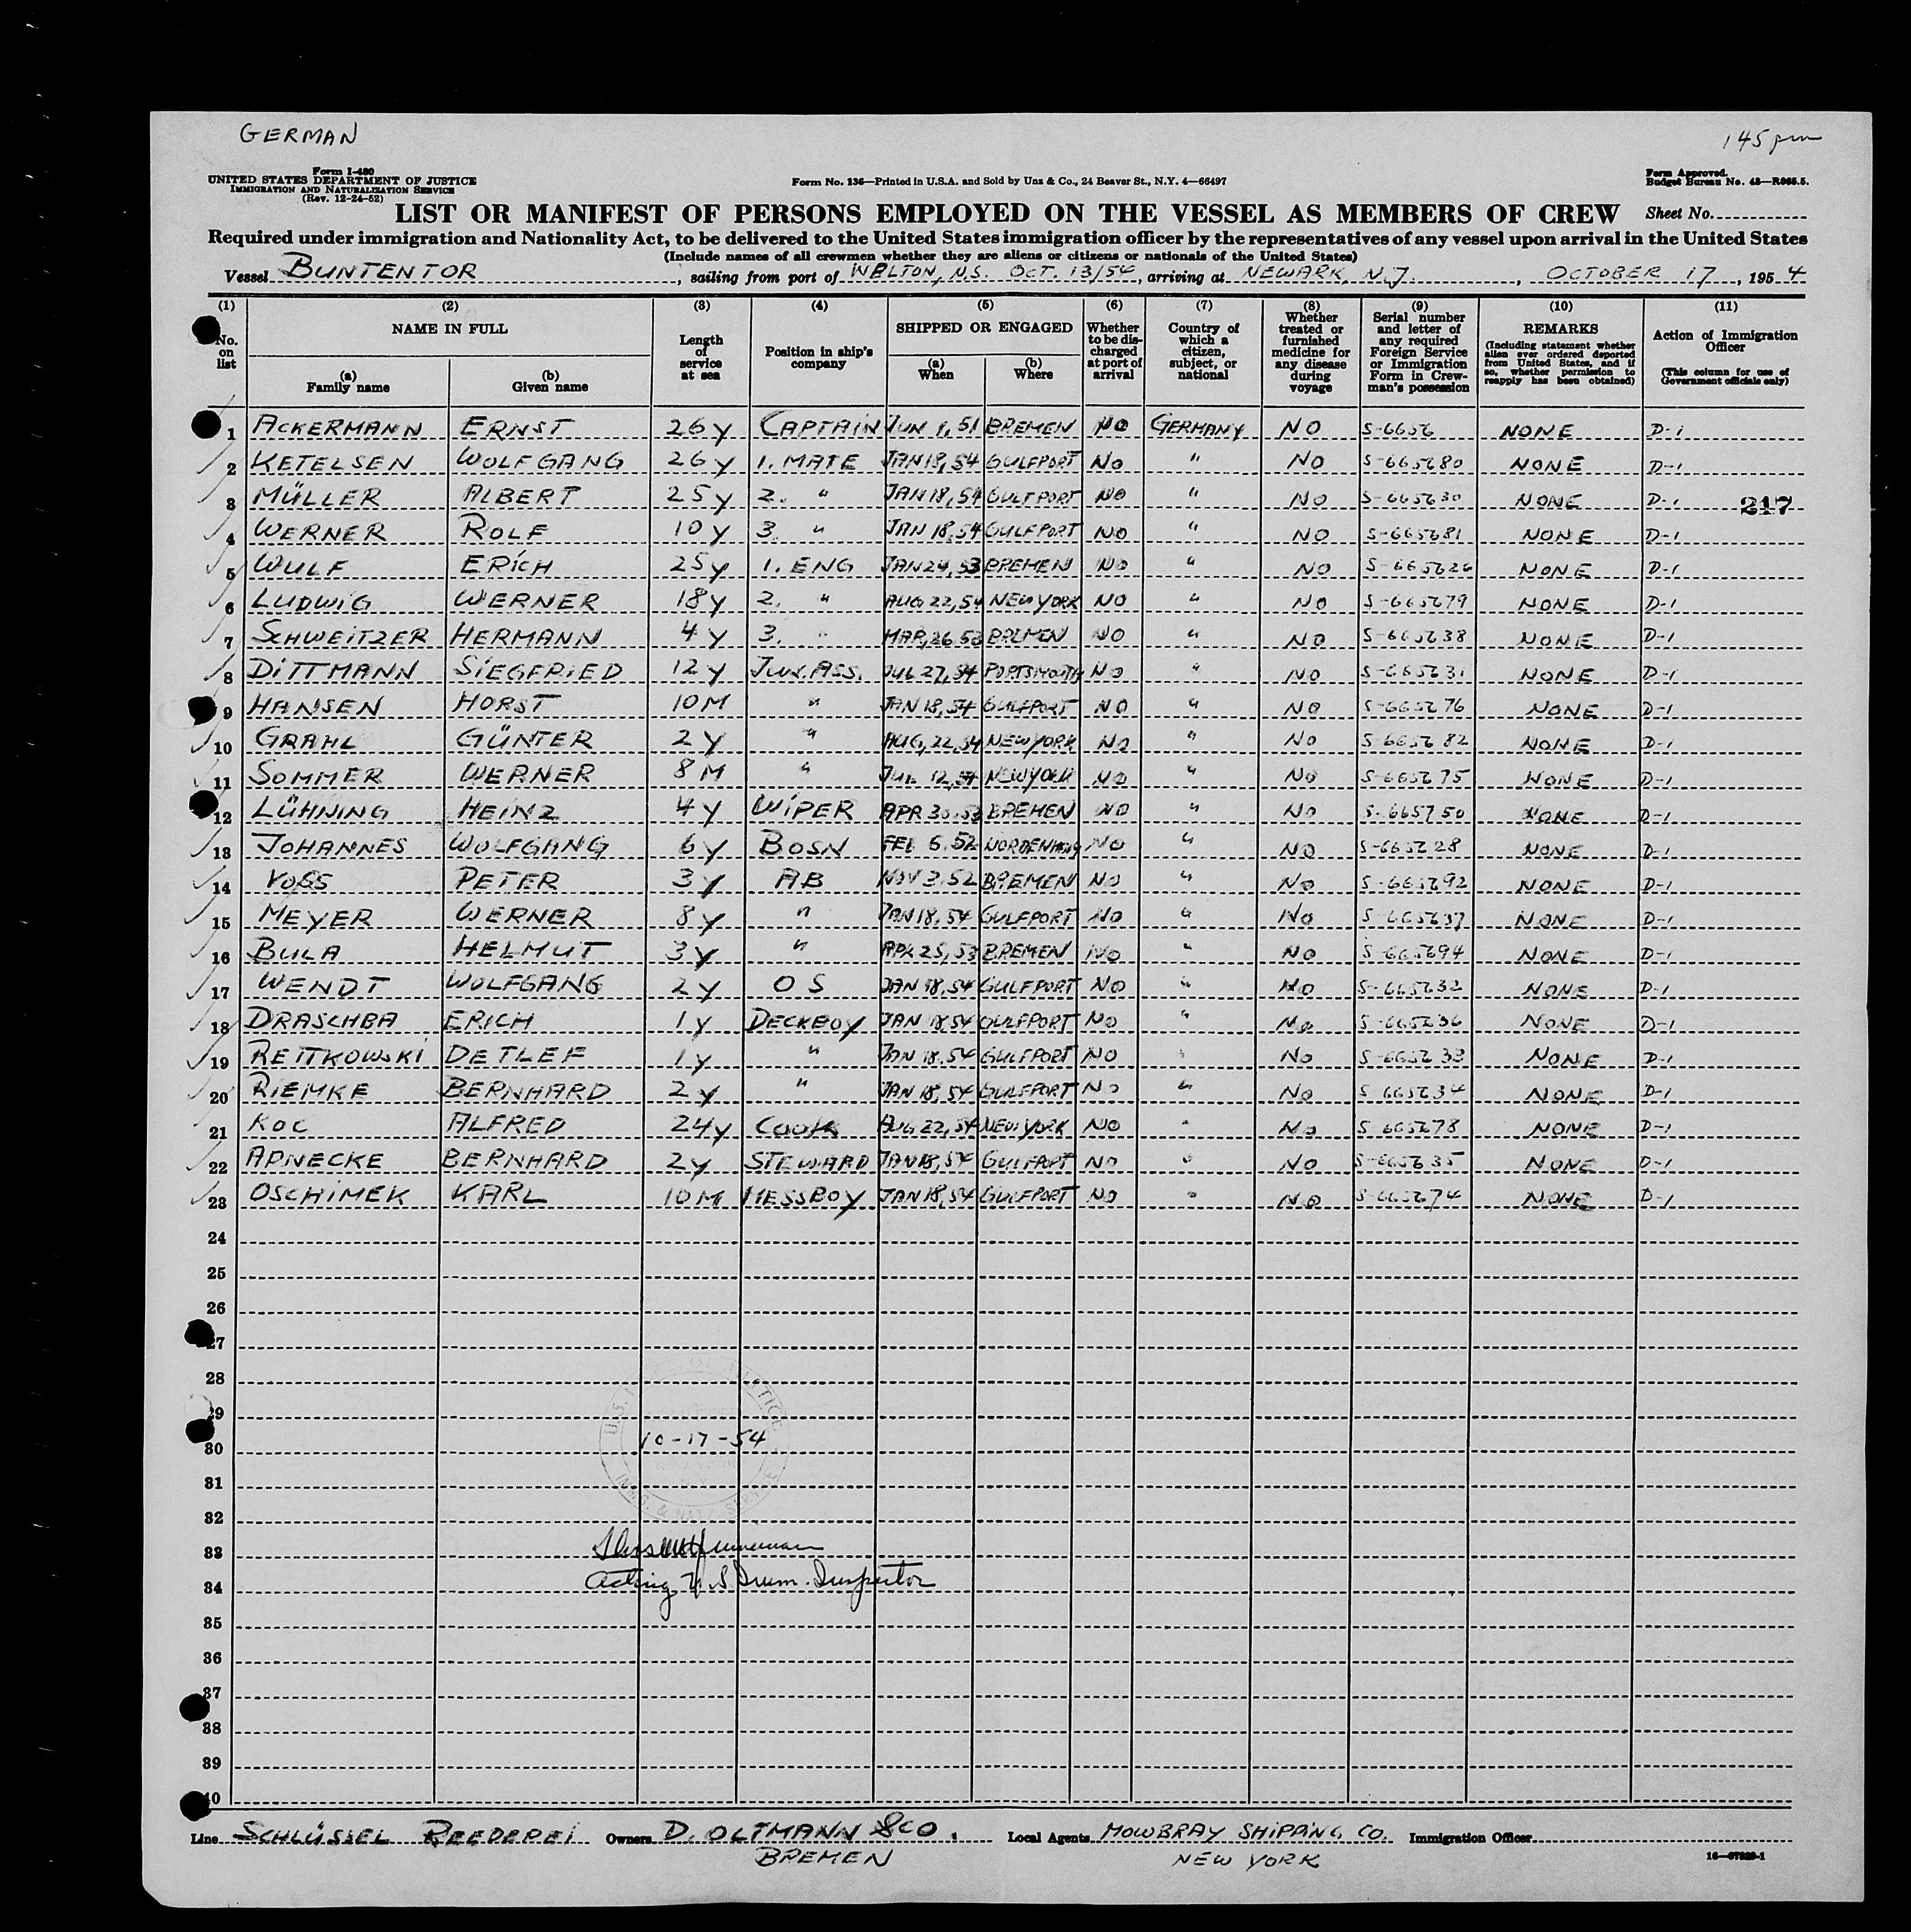 GERMAN
145 pm
Form I-480
UNITED STATES DEPARTMENT OF JUSTICE
IMMIGRATION AND NATURALIZATION SERVICE
(Rev. 12-24-52)
Form No. 136—Printed in U.S.A. and Sold by Unz & Co., 24 Beaver St., N.Y. 4—66497
Form Approved.
Budget Bureau No. 43—R065.5.
LIST OR MANIFEST OF PERSONS EMPLOYED ON THE VESSEL AS MEMBERS OF CREW Sheet No.
Required under immigration and Nationality Act, to be delivered to the United States immigration officer by the representatives of any vessel upon arrival in the United States
(Include names of all crewmen whether they are aliens or citizens or nationals of the United States)
Vessel BUNTENTOR, sailing from port of WALTON, N.S. OCT. 13/54, arriving at NEWARK, N.J., OCTOBER 17, 1954
(1) No. on list
(2) NAME IN FULL
(a) Family name
(b) Given name
(3) Length of service at sea
(4) Position in ship's company
(5) SHIPPED OR ENGAGED
(a) When
(b) Where
(6) Whether to be discharged at port of arrival
(7) Country of which a citizen, subject, or national
(8) Whether treated or furnished medicine for any disease during voyage
(9) Serial number and letter of any required Foreign Service or Immigration Form in Crewman's possession
(10) REMARKS (Including statement whether alien ever ordered deported from United States, and if so, whether permission to reapply has been obtained)
(11) Action of Immigration Officer (This column for use of Government officials only)
1 ACKERMANN ERNST 26 y CAPTAIN JUN 1, 51 BREMEN NO GERMANY NO S-6656 NONE D-1
2 KETELSEN WOLFGANG 26 y 1. MATE JAN 18, 54 GULFPORT NO " NO S-665680 NONE D-1
3 MÜLLER ALBERT 25 y 2. " JAN 18, 54 GULFPORT NO " NO S-665630 NONE D-1
217
4 WERNER ROLF 10 y 3. " JAN 18, 54 GULFPORT NO " NO S-665681 NONE D-1
5 WULF ERICH 25 y 1. ENG JAN 24, 53 BREMEN NO " NO S-665626 NONE D-1
6 LUDWIG WERNER 18 y 2. " AUG 22, 54 NEW YORK NO " NO S-665679 NONE D-1
7 SCHWEITZER HERMANN 4 y 3. " MAR, 26 53 BREMEN NO " NO S-665638 NONE D-1
8 DITTMANN SIEGFRIED 12 y JUN. ASS. JUL 27, 54 PORTSMOUTH NO " NO S-665631 NONE D-1
9 HANSEN HORST 10 M " JAN 18, 54 GULFPORT NO " NO S-665676 NONE D-1
10 GRAHL GÜNTER 2 y " AUG, 22, 54 NEW YORK NO " NO S-665682 NONE D-1
11 SOMMER WERNER 8 M " 12, 54 NEW YORK NO " NO S-665675 NONE D-1
12 LÜHNING HEINZ 4 y WIPER APR 30, 53 BREMEN NO " NO S-665750 NONE D-1
13 JOHANNES WOLFGANG 6 y BOSN FEB 6. 52 NORDENHAM NO " NO S-665628 NONE D-1
14 VOSS PETER 3 y AB NOV 3. 52 BREMEN NO " NO S-665692 NONE D-1
15 MEYER WERNER 8 y " JAN 18, 54 GULFPORT NO " NO S-665637 NONE D-1
16 BULA HELMUT 3 y " APR 25, 53 BREMEN NO " NO S-665694 NONE D-1
17 WENDT WOLFGANG 2 y OS JAN 18, 54 GULFPORT NO " NO S-665632 NONE D-1
18 DRASCHBA ERICH 1 y DECKBOY JAN 18 54 GULFPORT NO " NO S-665636 NONE D-1
19 RETTKOWSKI DETLEF 1 y " JAN 18. 54 GULFPORT NO " NO S-665633 NONE D-1
20 RIEMKE BERNHARD 2 y " JAN 18, 54 GULFPORT NO " NO S-665634 NONE D-1
21 KOC ALFRED 24 y COOK AUG 22, 54 NEW YORK NO " NO S-665678 NONE D-1
22 ARNECKE BERNHARD 2 y STEWARD JAN 18, 54 GULFPORT NO " NO S-665635 NONE D-1
23 OSCHIMEK KARL 10 M MESSBOY JAN 18, 54 GULFPORT NO " NO S-665674 NONE D-1
24
25
26
27
28
29
10-17-54
30
31
32
33
Acting U.S. Imm. Inspector
34
35
36
37
38
39
40
Line SCHLÜSSEL REEDEREI Owners D. OLTMANN & CO. Local Agents MOWBRAY SHIPPING CO. Immigration Officer
BREMEN NEW YORK